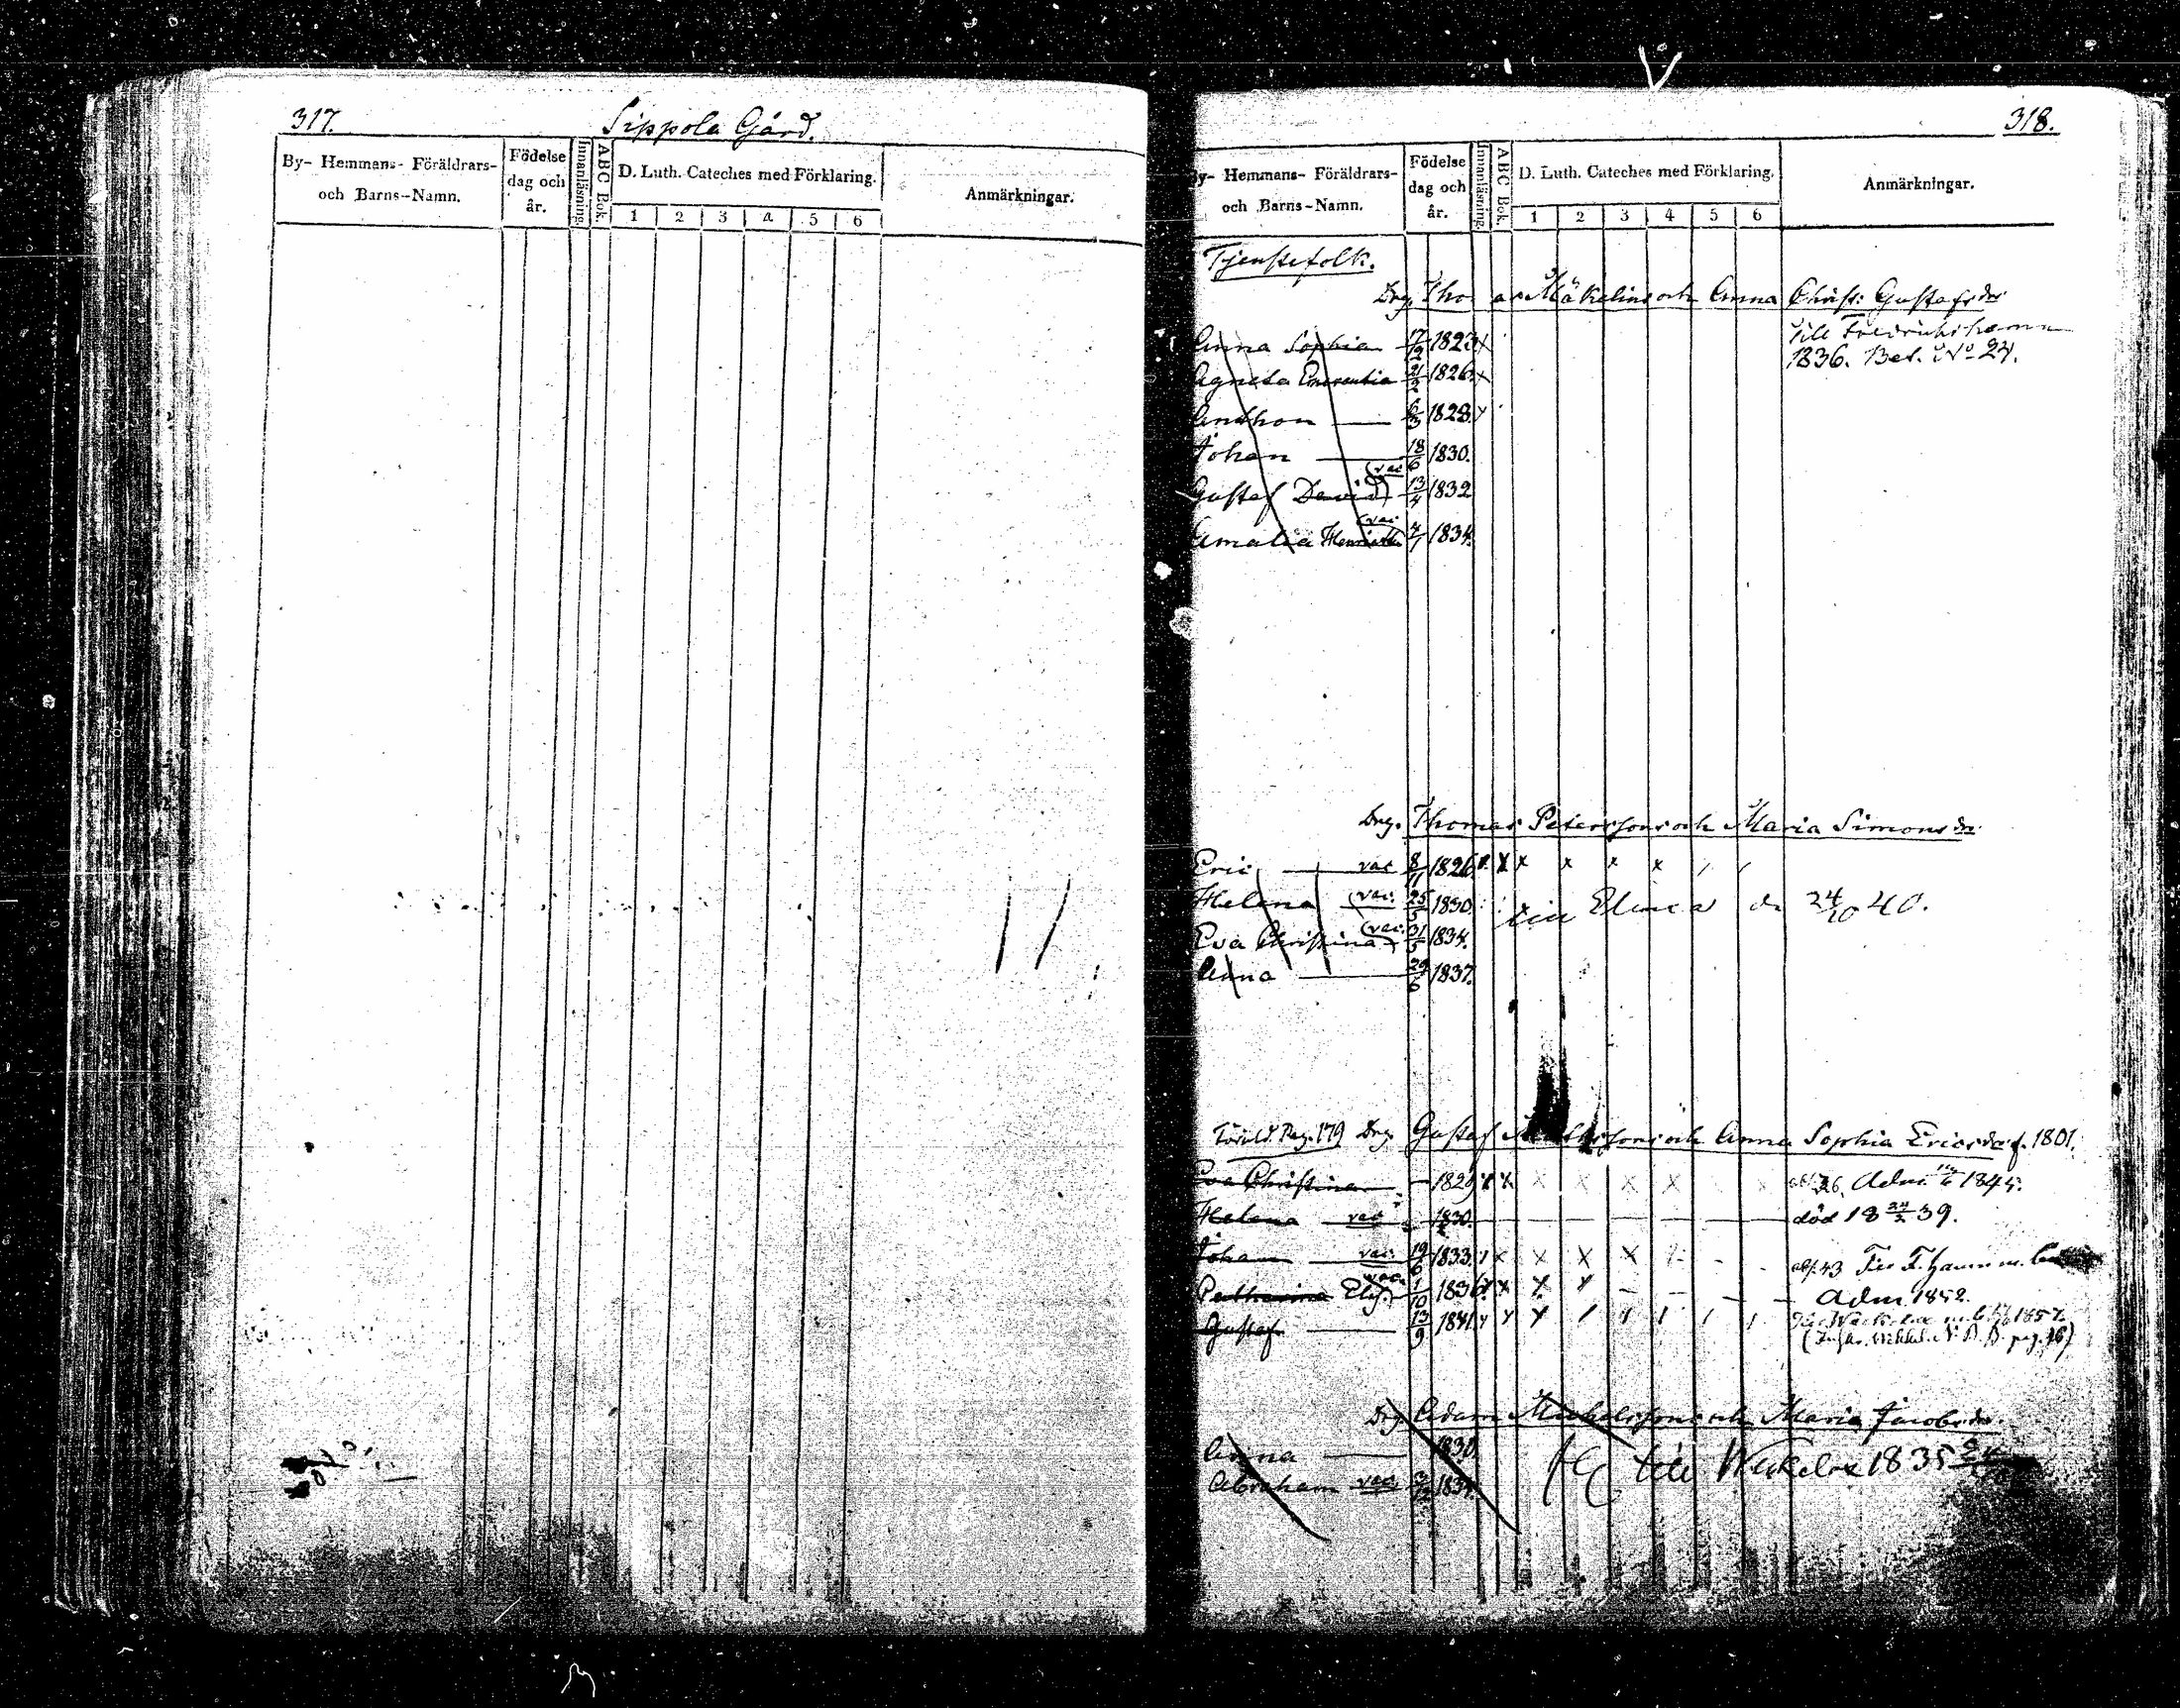 317.
Sippola Gård.
By- Hemmans- Föräldrars-
och Barns-Namn.
Födelse
dag och
år.
Innanläsning.
ABC Bok.
D. Luth. Cateches med Förklaring.
1 2 3 4 5 6
Anmärkningar.
318.
y- Hemmans- Föräldrars-
och Barns-Namn.
Födelse
dag och
år.
Innanläsning.
ABC Bok.
D. Luth. Cateches med Förklaring.
1 2 3 4 5 6
Anmärkningar.
Tjenstefolk.
Drg. Thomas Mäkelins och Anna Christ: Gustafsdr
Anna Sophia 17/12 1823 x Till Fredrikshamn
1836. Bet. No 24.
Agneta Emerentia 21/2 1826 x
Anthon 6/3 1828
Johan 18/6 1830.
Gustaf David (vac 13/4 1832
Amalia Henrietta (vac 1834.
Drg. Thomas Peterssons och Maria Simonsdr.
Eric vac 8/11 1826. x x x x x
Helena (vac. 25/5 1830. till Elimä d 24/10 40.
Eva Christina (vac. 31/5 1834.
Anna 29/6 1837.
Föräld. Pag. 179 Drg. Gustaf och Anna Sophia Ericsdr f. 1801.
Eva Christina 1829 x x x x x x x Adm. 1845.
Helena vac 1830. död 18 39.
Johan vac. 19/6 1833. x x x x 43
Catharina Elis vac. 1/10 1836 x x x Adm. 1852.
Gustaf 13/9 1841. 1857.
Drg. Adam Michelssons och Maria Jacobsdr.
Anna 1830. till Wekelax 1835
Abraham vac. 1834.